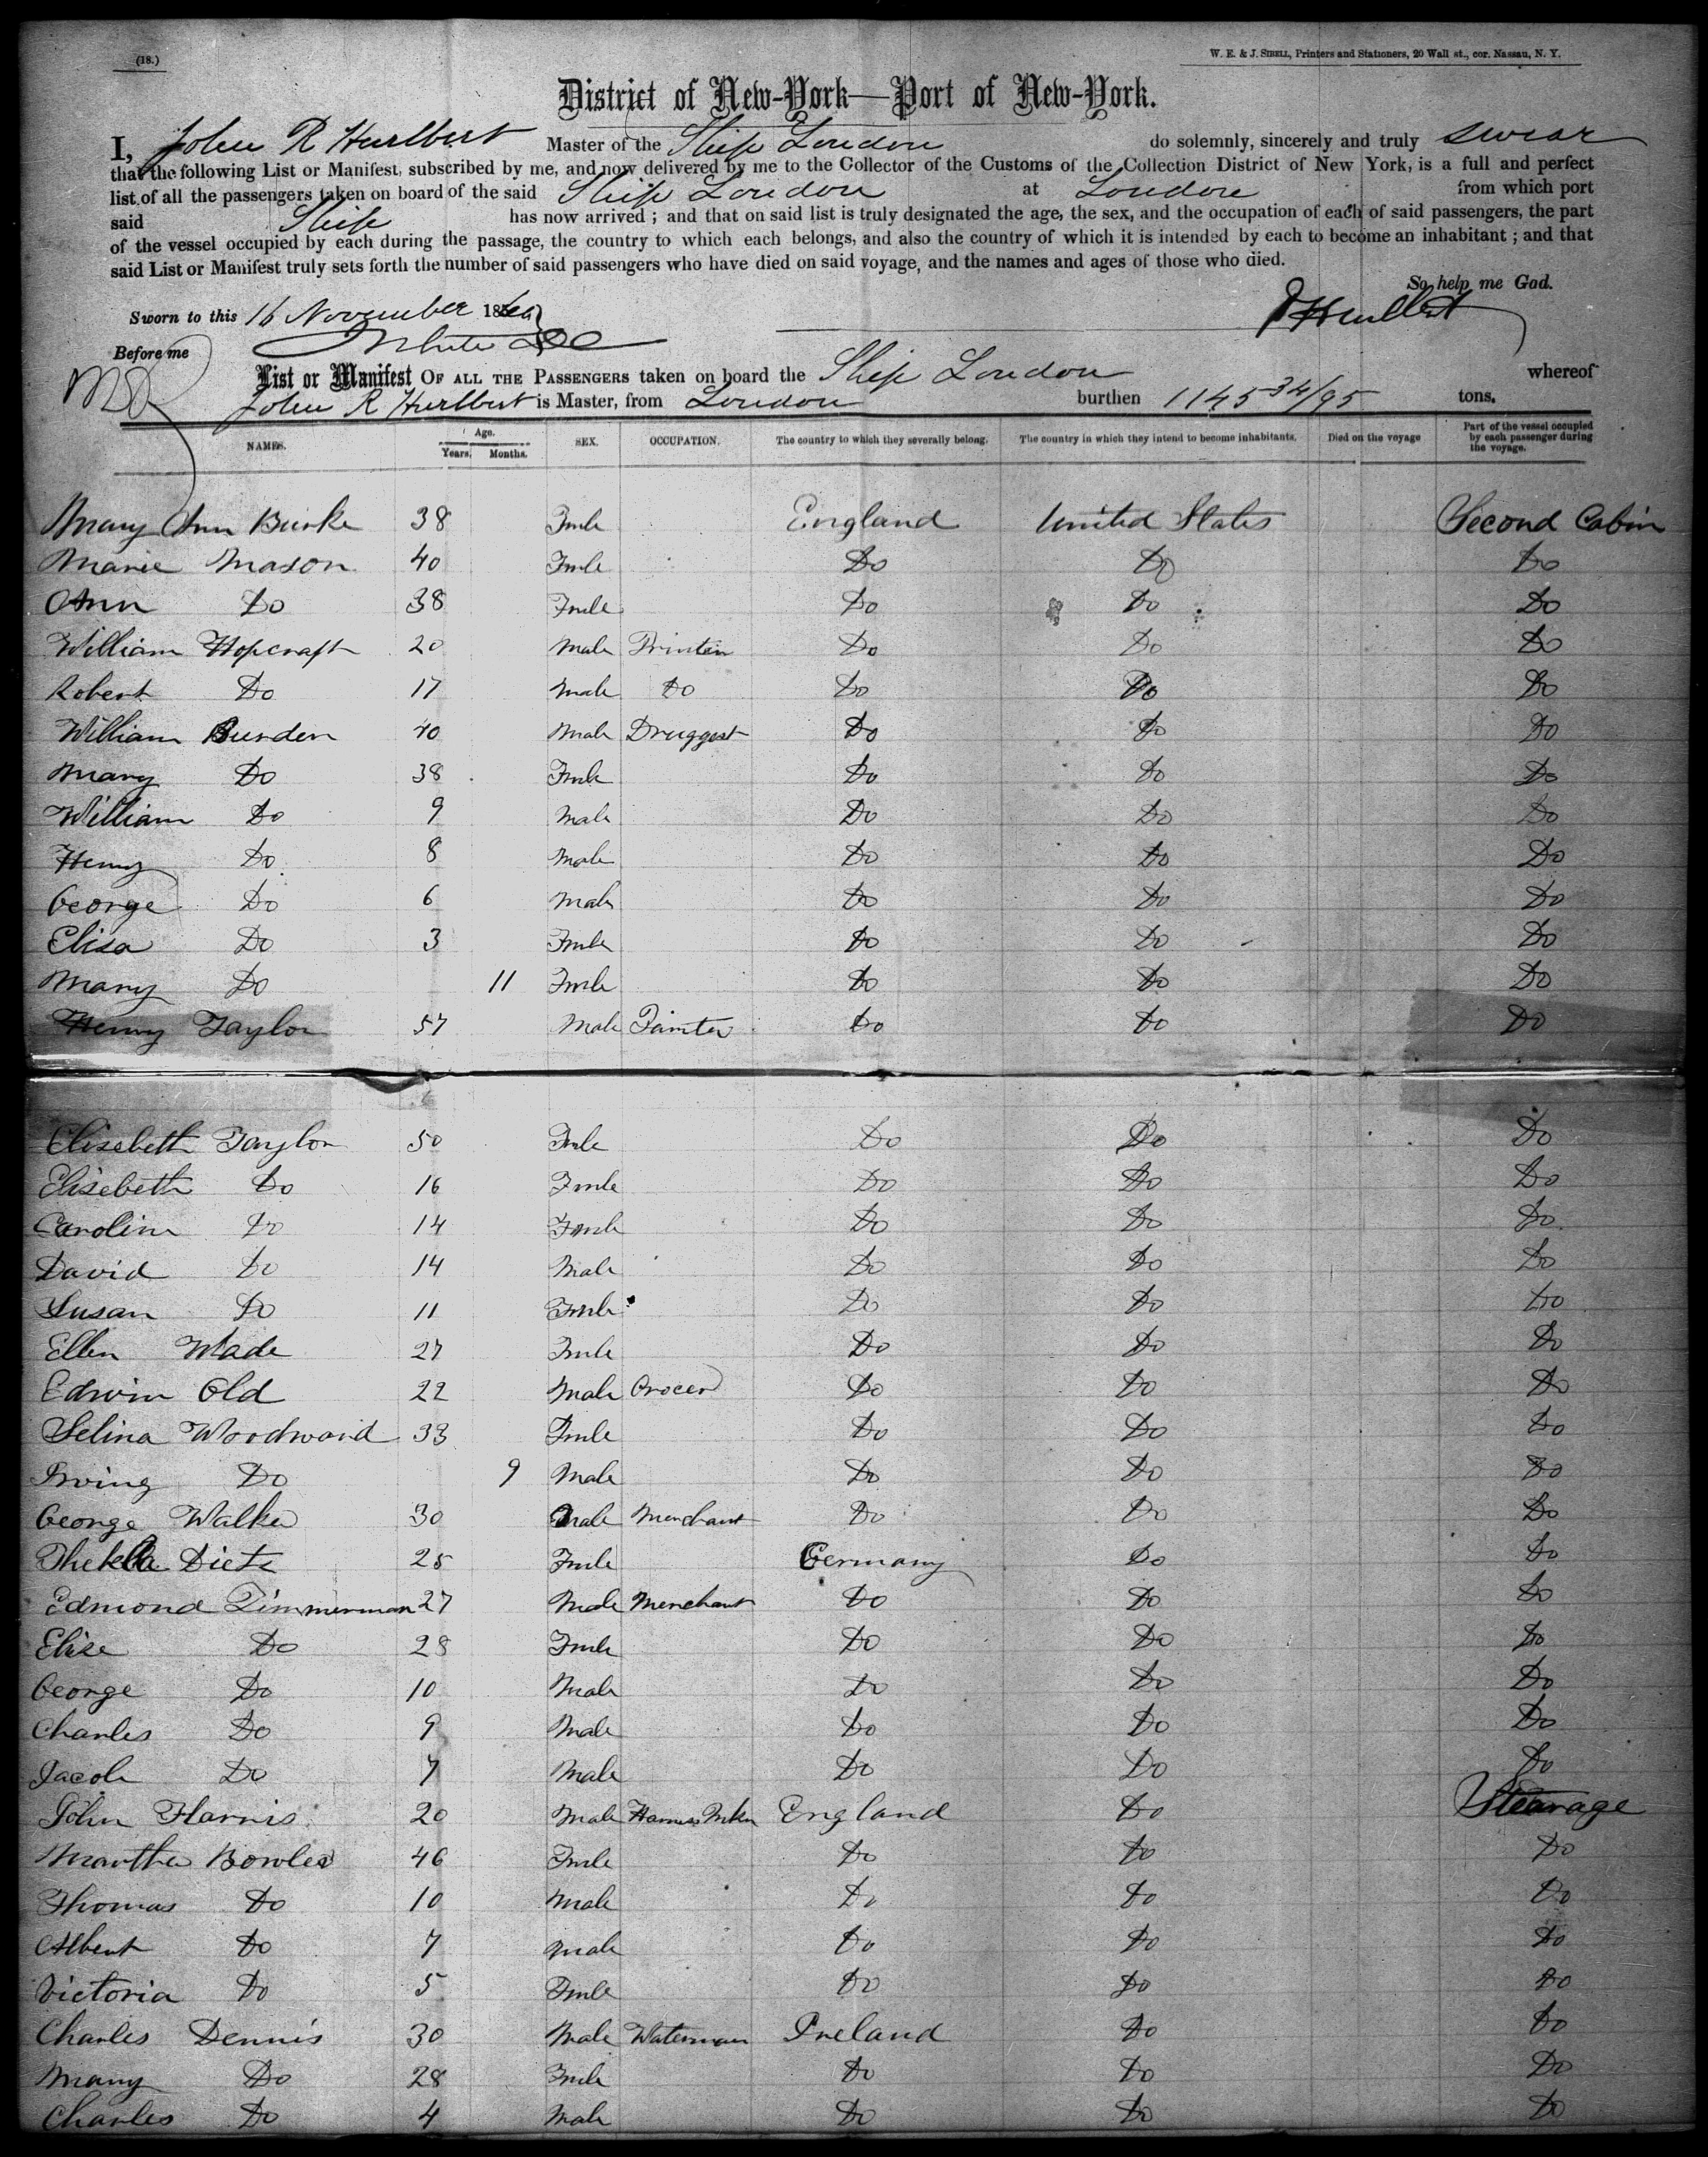 (18.)
W. E. & J. SIBELL, Printers and Stationers, 20 Wall st., cor. Nassau, N. Y.
District of New-York—Port of New-York.
I, John R Hurlbert Master of the Ship London do solemnly, sincerely and truly swear
that the following List or Manifest, subscribed by me, and now delivered by me to the Collector of the Customs of the Collection District of New York, is a full and perfect
list of all the passengers taken on board of the said Ship London at London from which port
said Ship has now arrived ; and that on said list is truly designated the age, the sex, and the occupation of each of said passengers, the part
of the vessel occupied by each during the passage, the country to which each belongs, and also the country of which it is intended by each to become an inhabitant ; and that
said List or Manifest truly sets forth the number of said passengers who have died on said voyage, and the names and ages of those who died.
So help me God.
Sworn to this 16 November 18
J Hurlbert
Before me
List or Manifest OF ALL THE PASSENGERS taken on board the Ship London whereof
John R Hurlbert is Master, from London burthen 1145 34/95 tons.
NAMES. Age. Years. Months. SEX. OCCUPATION. The country to which they severally belong. The country in which they intend to become inhabitants. Died on the voyage Part of the vessel occupied by each passenger during the voyage.
Mary Ann Burke 38 Fmle England United States Second Cabin
Marie Mason 40 Fmle Do Do Do
Ann Do 38 Fmle Do Do Do
William Hopcraft 20 Male Printer Do Do Do
Robert Do 17 Male Do Do Do Do
William Burden 40 Male Druggest Do Do Do
Mary Do 38 Fmle Do Do Do
William Do 9 Male Do Do Do
Henry Do 8 Male Do Do Do
George Do 6 Male Do Do Do
Elisa Do 3 Fmle Do Do Do
Mary Do 11 Fmle Do Do Do
Henry Taylor 57 Male Painter Do Do Do
Elisebeth Taylor 50 Fmle Do Do Do
Elisebeth Do 16 Fmle Do Do Do
Caroline Do 14 Fmle Do Do Do
David Do 14 Male Do Do Do
Susan Do 11 Fmle Do Do Do
Ellen Wade 27 Fmle Do Do Do
Edwin Old 22 Male Grocer Do Do Do
Selina Woodward 33 Fmle Do Do Do
Irving Do 9 Male Do Do Do
George Walker 30 Male Merchant Do Do Do
Thekla Dietz 25 Fmle Germany Do Do
Edmond Zimmerman 27 Male Merchant Do Do Do
Elise Do 28 Fmle Do Do Do
George Do 10 Male Do Do Do
Charles Do 9 Male Do Do Do
Jacob Do 7 Male Do Do Do
John Harris 20 Male Harness Mker England Do Stearage
Martha Bowles 46 Fmle Do Do Do
Thomas Do 10 Male Do Do Do
Albert Do 7 Male Do Do Do
Victoria Do 5 Fmle Do Do Do
Charles Dennis 30 Male Waterman Ireland Do Do
Mary Do 28 Fmle Do Do Do
Charles Do 4 Male Do Do Do